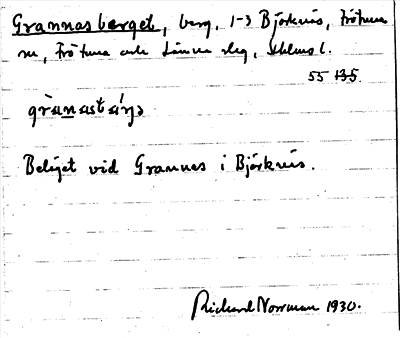 Grannasberget, berg, 1-3 Björknäs, Frötuna
sn, Frötuna och Länna slg, Sthlms l.
55 135.
grànastǽrjə
Beläget vid Grannas i Björknäs.
Richard Norrman 1930.